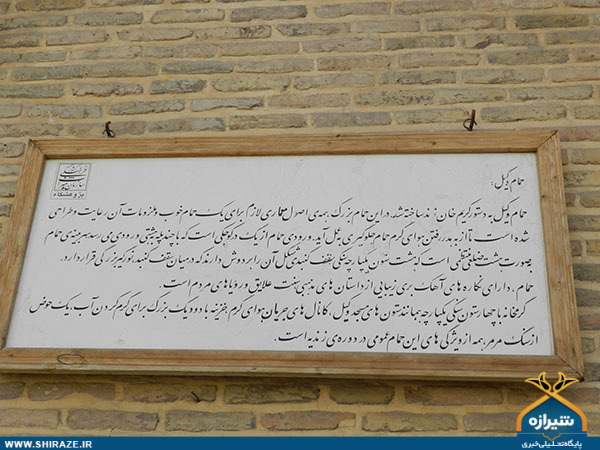 حمام وکیل:
حمام وکیل به دستور کریم خان زند ساخته شد. در این حمام بزرگ همه‌ی اصول معماری لازم برای یک حمام خوب و ملزومات آن رعایت و طراحی
شده است تا از به هدر رفتن هوای گرم حمام جلوگیری به عمل آید. ورودی حمام از یک در کوچکی است که با چند پله پیشتی ورودی می رسد سربینه‌ی حمام
بصورت هشت ضلعی منتظمی است که هشت ستون یکپارچه سنگی سقف گنبدی شکل آن را بر دوش دارند که در میان سقف گنبد نورگیر بزرگی قرار دارد.
حمام، دارای نگاره های آهک بری زیبایی از داستان های مذهبی سنت علایق و رویاهای مردم است.
گرمخانه با چهار ستون سنگی یکپارچه همانند ستون های مسجد وکیل، کانال های جریان هوای گرم، خزینه با دو دیگ بزرگ برای گرم کردن آب، یک حوض
از سنگ مرمر همه از ویژگی های این حمام عمومی در دوره ی زندیه است.
پژوهشگاه
شیرازه
پایگاه تحلیلی خبری
WWW.SHIRAZE.IR
WWW.SHIRAZE.IR